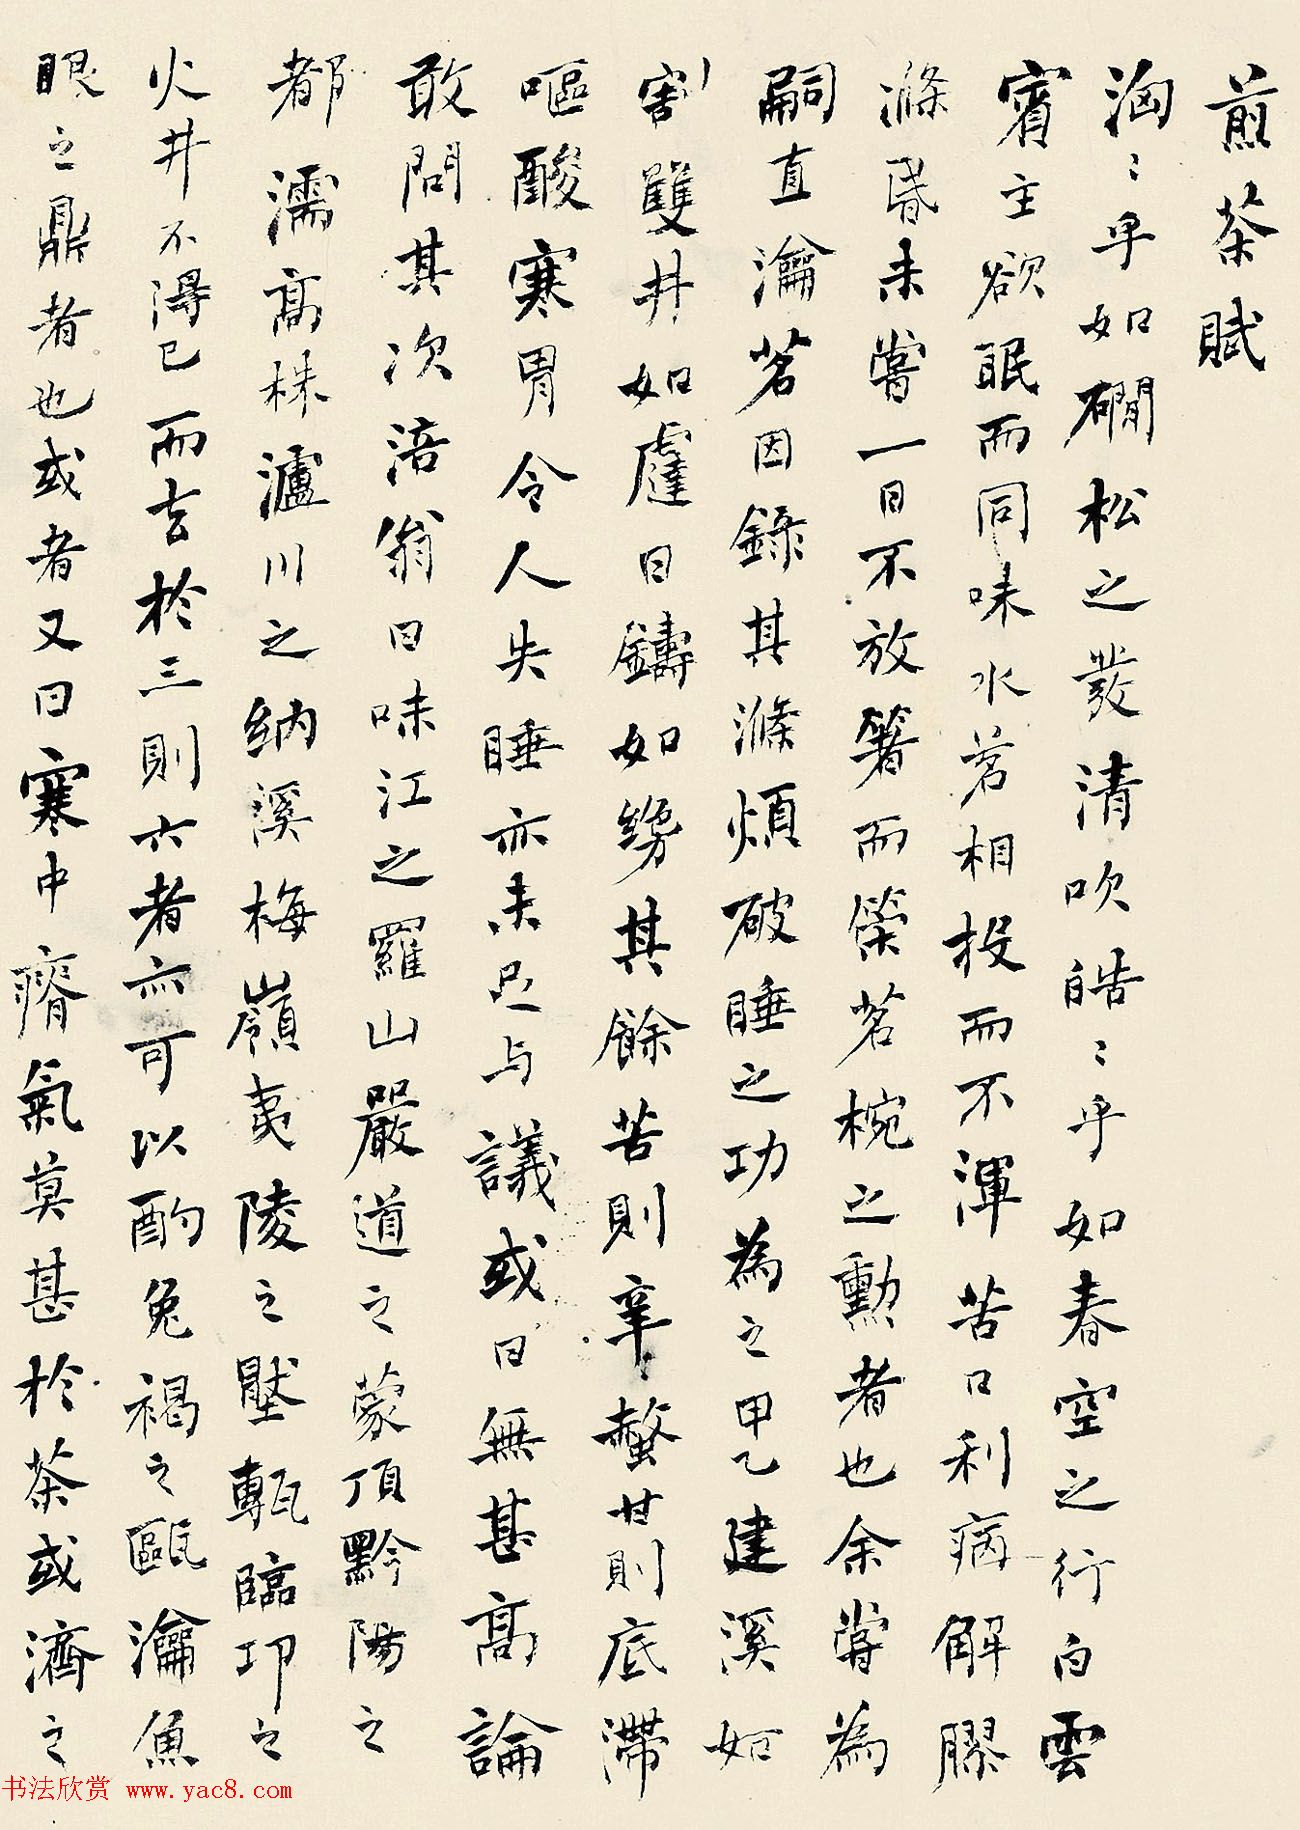 煎茶賦
洶〻乎如礀松之發清吹皓〻乎如春空之行白雲
賓主欲眠而同味水茗相投而不渾苦口利病解膠
滌昏未嘗一日不放箸而策茗椀之勳者也余嘗為
嗣直瀹茗因錄其滌煩破睡之功為之甲乙建溪如
割雙井如䢖日鑄如𢇃其餘苦則辛螫甘則底滯
嘔酸寒胃令人失睡亦未足与議或曰無甚高論
敢問其次涪翁曰味江之羅山嚴道之蒙頂黔陽之
都濡高株瀘川之納溪梅嶺夷陵之壓甎臨邛之
火井不得已而去於三則六者亦可以酌兔褐之甌瀹魚
眼之鼎者也或者又曰寒中瘠氣莫甚於茶或濟之
书法欣赏 www.yac8.com